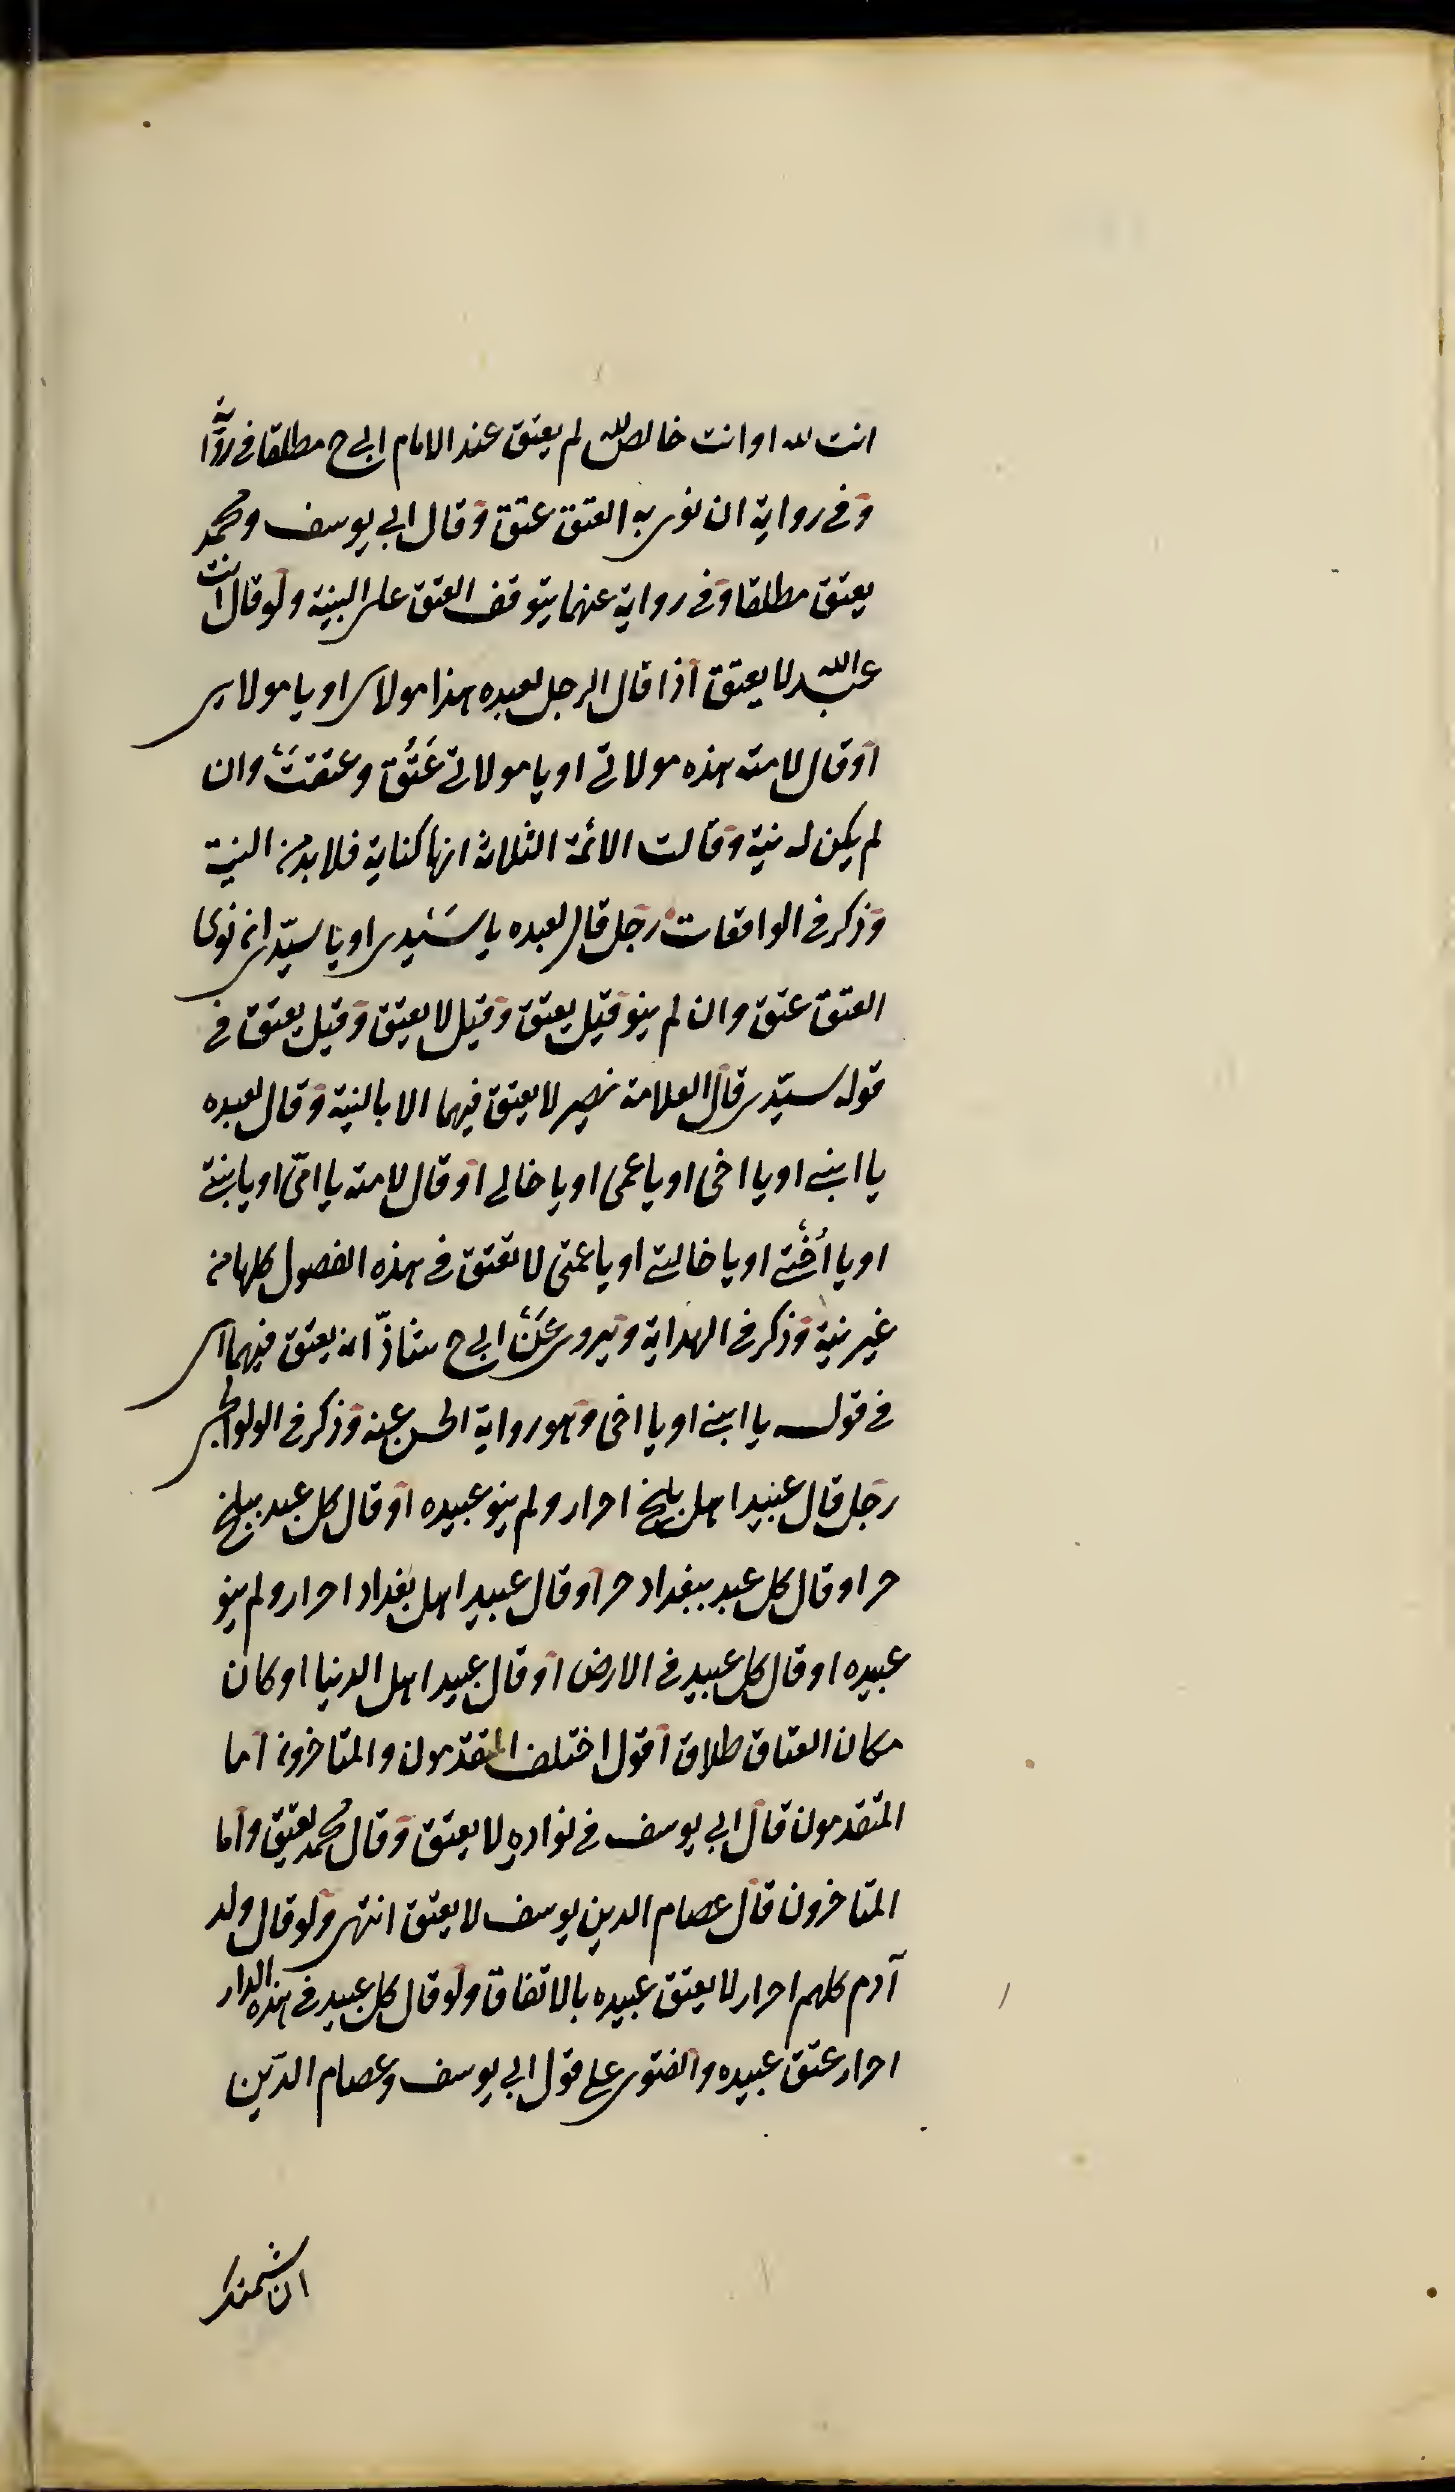 انت لله او انت خالص لله لم يعتق عند الامام ابي ح مطلقا في رواية
وفي رواية ان نوى به العتق عتق وقال ابي يوسف ومحمد
يعتق مطلقا وفي رواية عنهما يتوقف العتق على البينة ولو قال انت
عبد الله لا يعتق اذا قال الرجل لعبده هذا مولاى او يا مولاى
او قال لامته هذه مولاتي او يا مولاتي عَتُق وعتقت وان
لم يكن له نية وقالت الائمة الثلاثة انها كناية فلا بد من النية
وذكر في الواقعات رجل قال لعبده يا سَيدى او يا سيّدى ان نوى
العتق عتق وان لم ينو قيل يعتق وقيل لا يعتق وقيل يعتق في
قوله سيّدى قال العلامة نصير لا يعتق فيهما الا بالنية وقال لعبده
يا ابني او يا اخى او يا عمى او يا خالي او قال لامته يا امّى او يا بنتي
او يا أختي او يا خالتي او يا عمتى لا تعتق في هذه الفصول كلها من
غير نية وذكر في الهداية ويروى عَنْ ابي ح شاذّا انه يعتق فيهما اى
في قوله يا ابني او يا اخى وهو رواية الحسن عنه وذكر في الولوالجى
رجل قال عبيد اهل بلخ احرار ولم ينو عبيده او قال كل عبد ببلخ
حر او قال كل عبد ببغداد حر او قال عبيد اهل بغداد احرار ولم ينو
عبيده او قال كل عبيد في الارض او قال عبيد اهل الدنيا او كان
مكان العتاق طلاق اقول اختلف المتقدمون والمتاخرون اما
المتقدمون قال ابي يوسف في نوادره لا يعتق وقال محمد يعتق واما
المتاخرون قال عصام الدين يوسف لا يعتق انتهى ولو قال ولد
آدم كلهم احرار لا يعتق عبيده بالاتفاق ولو قال كل عبيد في هذه الدار
احرار عتق عبيده والفتوى على قول ابي يوسف وعصام الدّين